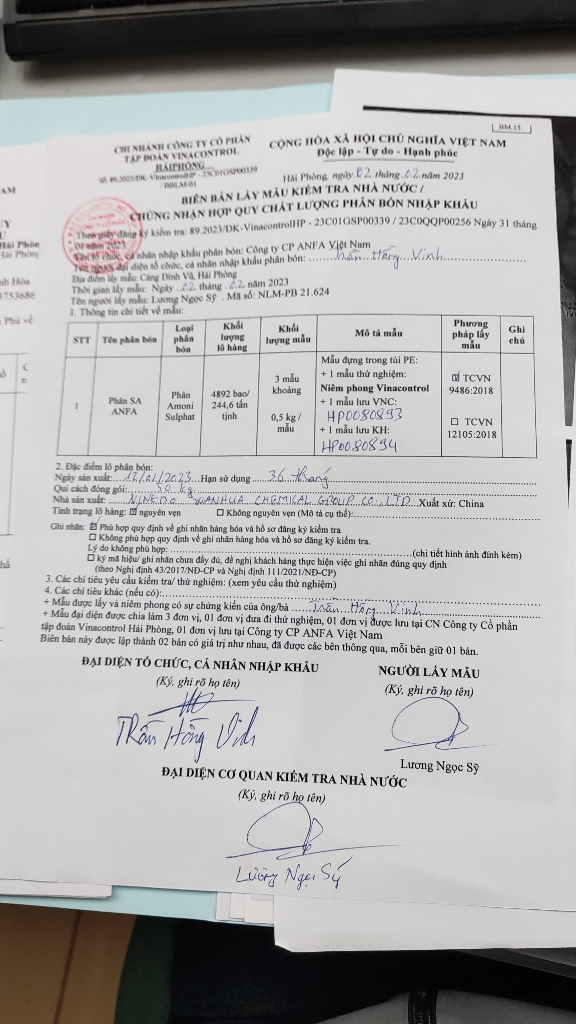 BM.15
CHI NHÁNH CÔNG TY CỔ PHẦN
TẬP ĐOÀN VINACONTROL
HẢI PHÒNG
Số: 89.2023/ĐK-VinacontrolHP - 23C01GSP00339
/ BBLM-01
CỘNG HÒA XÃ HỘI CHỦ NGHĨA VIỆT NAM
Độc lập - Tự do - Hạnh phúc
Hải Phòng, ngày 02 tháng 02 năm 2023
BIÊN BẢN LẤY MẪU KIỂM TRA NHÀ NƯỚC /
CHỨNG NHẬN HỢP QUY CHẤT LƯỢNG PHÂN BÓN NHẬP KHẨU
Theo giấy đăng ký kiểm tra: 89.2023/ĐK-VinacontrolHP - 23C01GSP00339 / 23C0QQP00256 Ngày 31 tháng
01 năm 2023
Tên tổ chức, cá nhân nhập khẩu phân bón: Công ty CP ANFA Việt Nam
Tên người đại diện tổ chức, cá nhân nhập khẩu phân bón: Trần Hồng Vinh
Địa điểm lấy mẫu: Cảng Đình Vũ, Hải Phòng
Thời gian lấy mẫu: Ngày 02 tháng 02 năm 2023
Tên người lấy mẫu: Lương Ngọc Sỹ . Mã số: NLM-PB 21.624
1. Thông tin chi tiết về mẫu:
STT Tên phân bón Loại phân bón Khối lượng lô hàng Khối lượng mẫu Mô tả mẫu Phương pháp lấy mẫu Ghi chú
1 Phân SA ANFA Phân Amoni Sulphat 4892 bao/ 244,6 tấn tịnh 3 mẫu khoảng 0,5 kg / mẫu
Mẫu đựng trong túi PE:
+ 1 mẫu thử nghiệm:
Niêm phong Vinacontrol
+ 1 mẫu lưu VNC:
HP0080893
+ 1 mẫu lưu KH:
HP0080894
☑ TCVN
9486:2018
☐ TCVN
12105:2018
2. Đặc điểm lô phân bón:
Ngày sản xuất: 12/01/2023 Hạn sử dụng 36 tháng
Qui cách đóng gói: 50 kg
Nhà sản xuất: NINGBO YUANHUA CHEMICAL GROUP CO., LTD Xuất xứ: China
Tình trạng lô hàng: ☑ nguyên vẹn ☐ Không nguyên vẹn (Mô tả cụ thể):
Ghi nhãn: ☑ Phù hợp quy định về ghi nhãn hàng hóa và hồ sơ đăng ký kiểm tra
☐ Không phù hợp quy định về ghi nhãn hàng hóa và hồ sơ đăng ký kiểm tra.
Lý do không phù hợp: (chi tiết hình ảnh đính kèm)
☐ ký mã hiệu/ ghi nhãn chưa đầy đủ, đề nghị khách hàng thực hiện việc ghi nhãn đúng quy định
(theo Nghị định 43/2017/NĐ-CP và Nghị định 111/2021/NĐ-CP)
3. Các chỉ tiêu yêu cầu kiểm tra/ thử nghiệm: (xem yêu cầu thử nghiệm)
4. Các chỉ tiêu khác (nếu có):
+ Mẫu được lấy và niêm phong có sự chứng kiến của ông/bà Trần Hồng Vinh
+ Mẫu đại diện được chia làm 3 đơn vị, 01 đơn vị đưa đi thử nghiệm, 01 đơn vị được lưu tại CN Công ty Cổ phần
tập đoàn Vinacontrol Hải Phòng, 01 đơn vị lưu tại Công ty CP ANFA Việt Nam
Biên bản này được lập thành 02 bản có giá trị như nhau, đã được các bên thông qua, mỗi bên giữ 01 bản.
ĐẠI DIỆN TỔ CHỨC, CÁ NHÂN NHẬP KHẨU
(Ký, ghi rõ họ tên)
Trần Hồng Vinh
NGƯỜI LẤY MẪU
(Ký, ghi rõ họ tên)
Lương Ngọc Sỹ
ĐẠI DIỆN CƠ QUAN KIỂM TRA NHÀ NƯỚC
(Ký, ghi rõ họ tên)
Lương Ngọc Sỹ